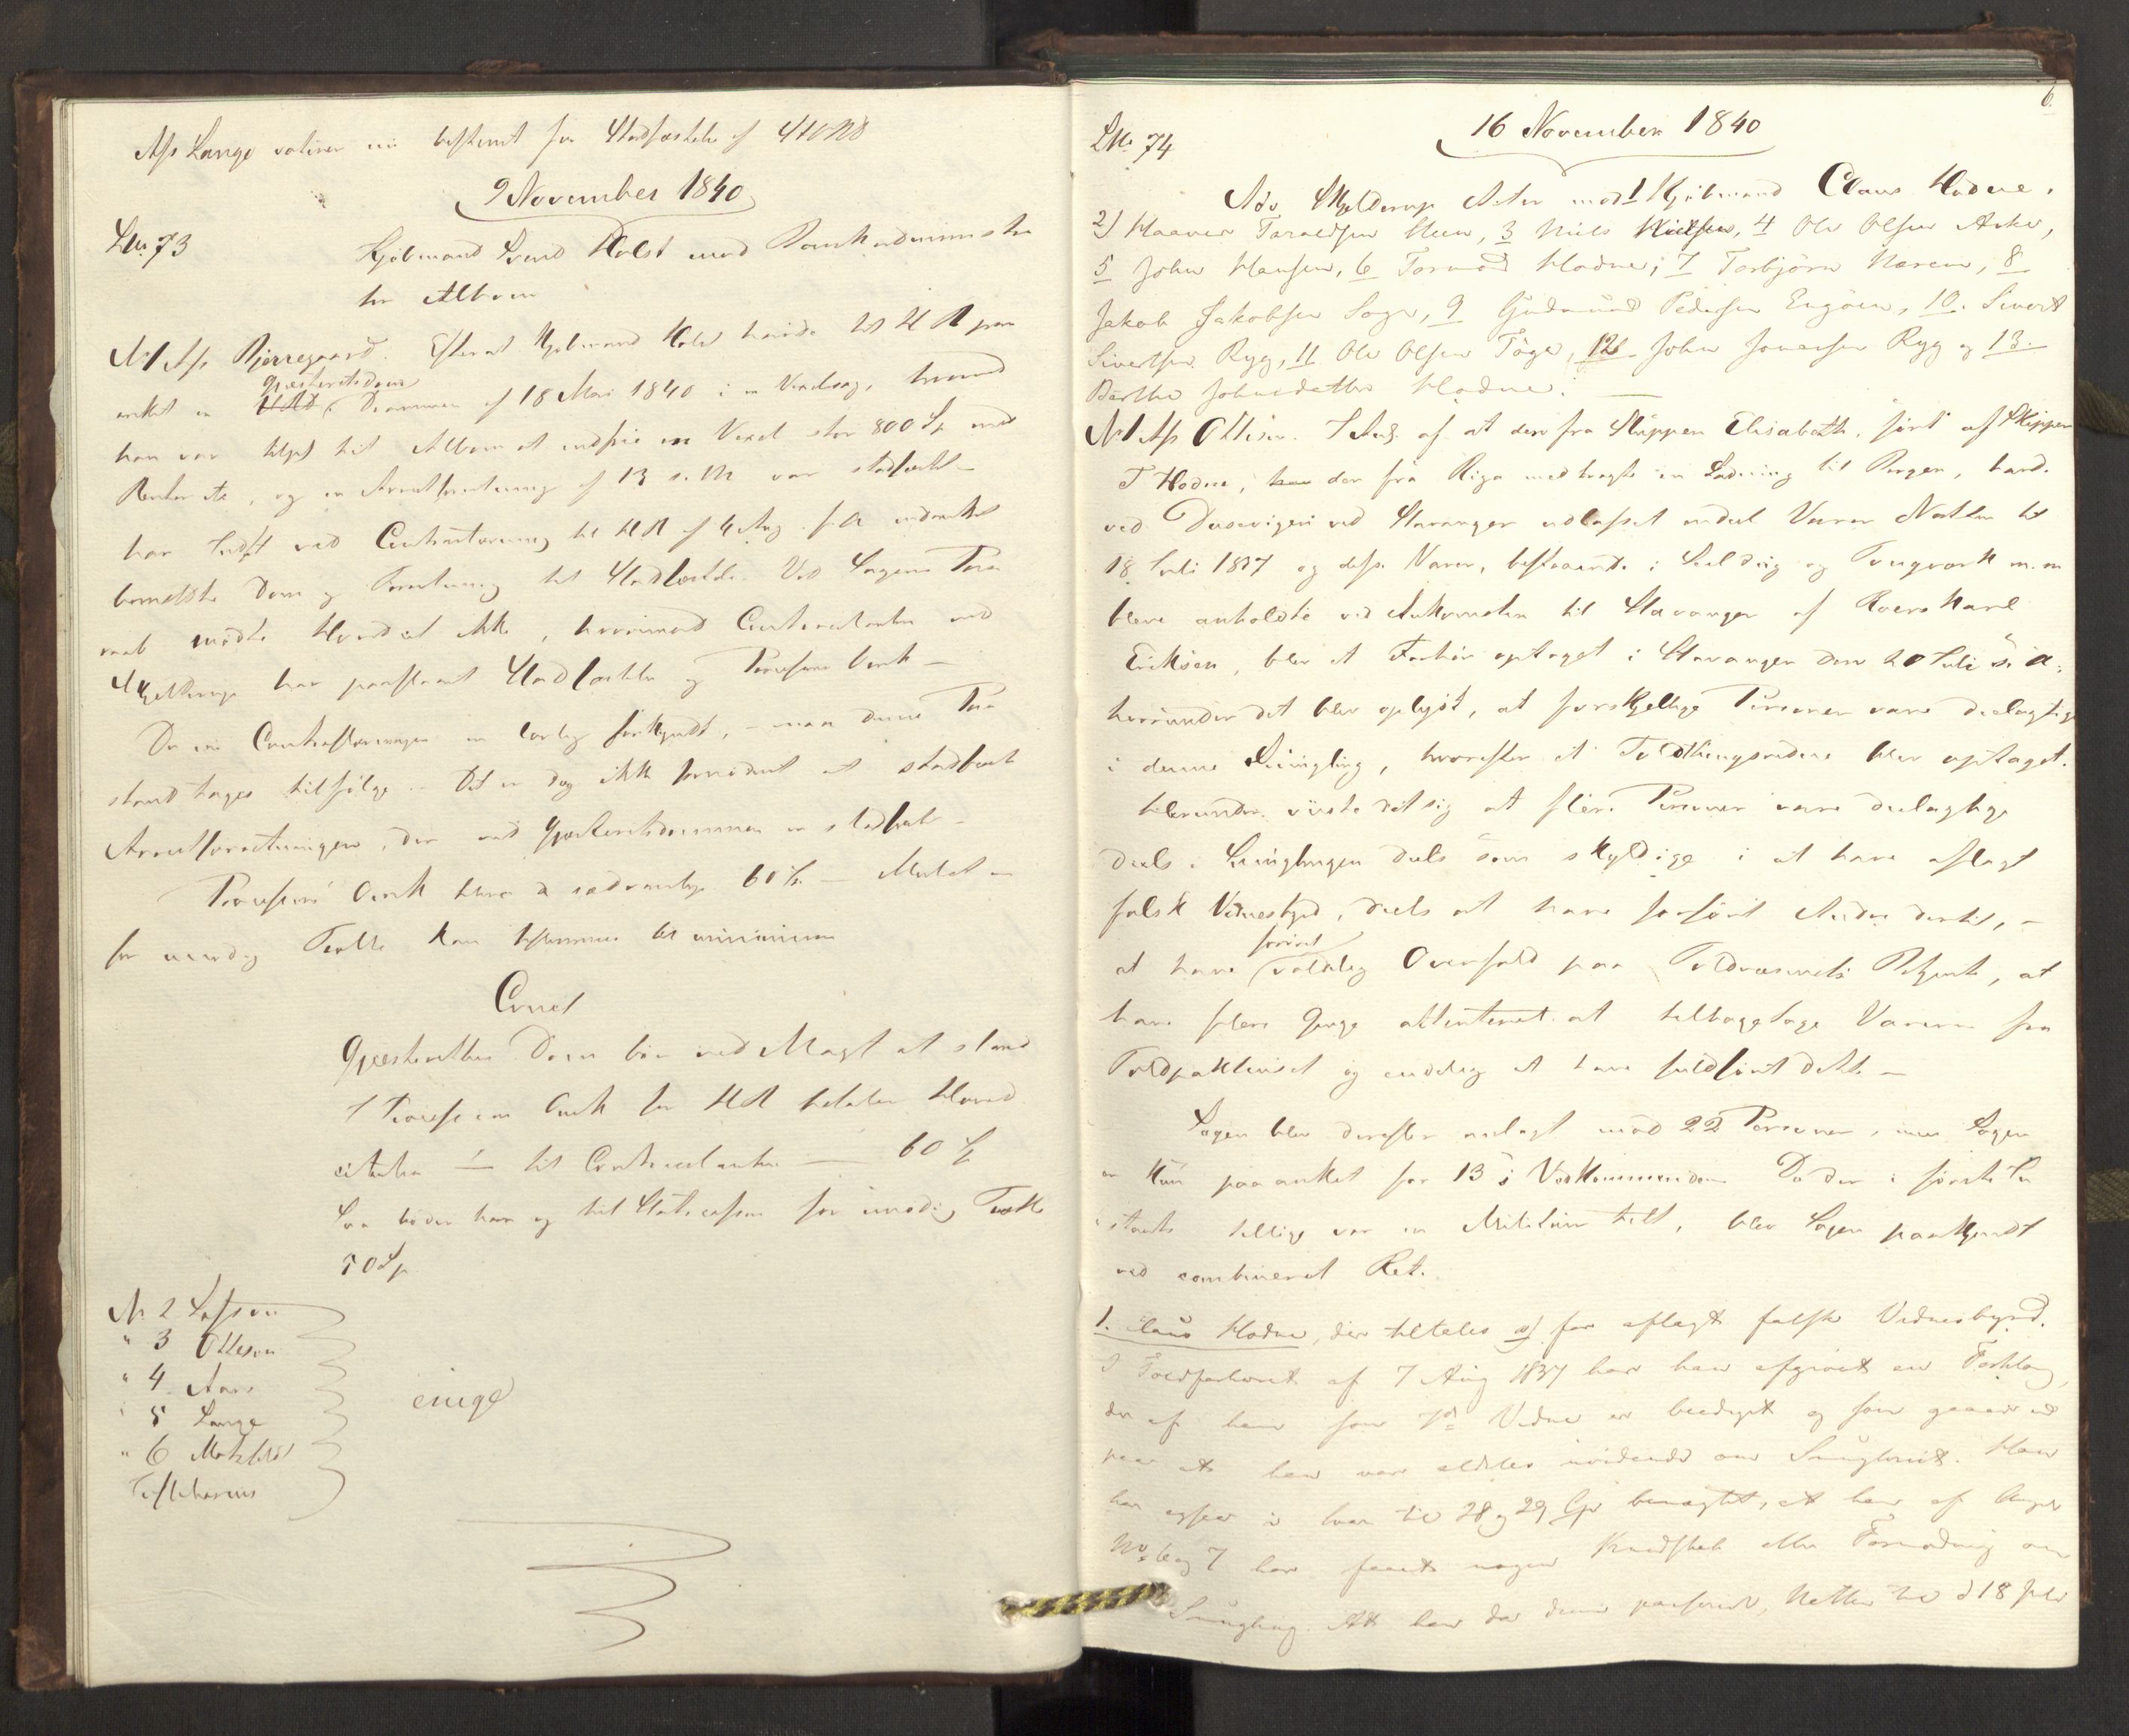 Ass Lange voterer nu bestemt for Stadfæstelse af HRD
9 November 1840
LNr. 73
Kjøbmand Svend Holst mod Bankadministra
tor Albom
No 1 Ass Bjerregaard. Efterat Kjøbmand Holst havde til HR paa
anket en
Gjesteretsdom
Drammen af 18 Mai 1840 i en Vexelsag, hvorved
han var tilpl til Albom at indfrie en Vexel stor 800 Sp med
Renter etc, og en Arrestforretning af 13 s. M var stadfæstet
har ved Contrastævning til HR af 4 Aug. s. A indanket
bemeldte Dom og Forretning til Stadfæstelse. Ved Sagens Paa
raab mødte Hovedcit ikke, hvorimod Contracitanten ved
Skjelderup har paastaaet Stadfæstelse og Processens Omk
Da nu Contrastævningen er lovlig forkyndt, maa denne Paa
stand tages tilfølge. Det er dog ikke fornødent at stadfæste
Arrestforretningen, der ved Gjesteretsdommen er stadfæstet
Processens Omk blive de sædvanlige 60 Sp. Mulct
for unødig Trætte kan bestemmes til minimum
Conclus
Gjesterettens Dom bør ved Magt at stand
I Processens Omk for HR betaler Hoved
citanten til Contracitanten 60 Sp
Saa bøder han og til Statscassen for unødig Trætte
10 Sp
No 2 Lasson
" 3 Ottesen
" 4 Aars
" 5 Lange
" 6 Motzfeldt
Justitiarius
enige
6.
16 November 1840
LNr. 74
Adv Skjelderup Actor mod 1 Kjøbmand Claus Hodne.
2) Haaver Taraldsen Meen, 3 Niels Nielsen, 4 Ole Olsen Aske,
5 John Hansen, 6 Tormod Hodne, 7 Torbjørn Næren, 8
Jakob Jakobsen Sogn, 9 Gudmund Pedersen Engøen, 10. Sivert
Sivertsen Ryg, 11 Ole Olsen Tøge, 12 John Jonassen Ryg og 13.
Berthe Johnsdatter Hodne.
No 1 Ass Ottesen. I Anl. af at der fra Skippen Elisabeth, ført af Skipper
T Hodne, der fra Riga medbragte en Ladning til Bergen, havde
ved Dusevigen ved Stavanger udlosset endeel Varer Natten til
18 Juli 1837 og disse Varer, bestaaende i Seildug og Tougværk m. m
bleve anholdte ved Ankomsten til Stavanger af Roerskarl
Eriksen, blev et Forhør optaget i Stavanger den 20 Juli s. A.
hvorunder det blev oplyst, at forskjellige Personer vare deelagtige
i denne Smugling, hvorefter et Toldthingsvidne blev optaget.
Herunder viste det sig at flere Personer vare deelagtige
deels i Smuglingen deels som skyldige i at have aflagt
falsk Vidnesbyrd, deels at have forført Andre dertil,
at have
forøvet
voldelig Overfald paa Toldvæsenets Betjente, at
have flere Gange attenteret at tilbagetage Varerne fra
Toldpakhuset og endelig at have fuldført dette
Sagen blev derefter anlagt mod 22 Personer, men Sagen
er kun paaanket for 13s Vedkommende. Da der i første In
stants tillige var en Militair tilt, blev Sagen paakjendt
ved combineret Ret.
1. Claus Hodne, der tiltales a) for aflagt falsk Vidnesbyrd.
I Toldforhøret af 7 Aug 1837 har han afgivet en Forklaring,
der af ham som 7de Vidne er beediget og som gaaer ud
paa at han var aldeles uvidende om Smugleriet. Han
har ogsaa i Svar til 28 og 29 Sp benægtet, at han af Ang
No 6 og 7 har faaet nogen Kundskab eller Formodning om
Smugling. At han da denne passerede, Natten til d 18 Juli